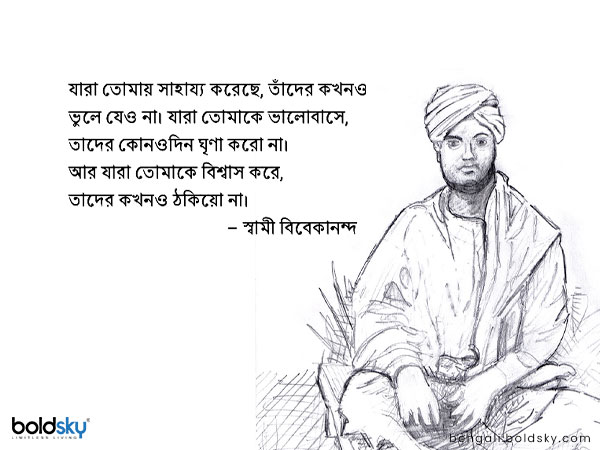 যারা তোমায় সাহায্য করেছে, তাঁদের কখনও
ভুলে যেও না। যারা তোমাকে ভালোবাসে,
তাদের কোনওদিন ঘৃণা করো না।
আর যারা তোমাকে বিশ্বাস করে,
তাদের কখনও ঠকিয়ো না।
– স্বামী বিবেকানন্দ
boldsky
LIMITLESS LIVING
bengali.boldsky.com